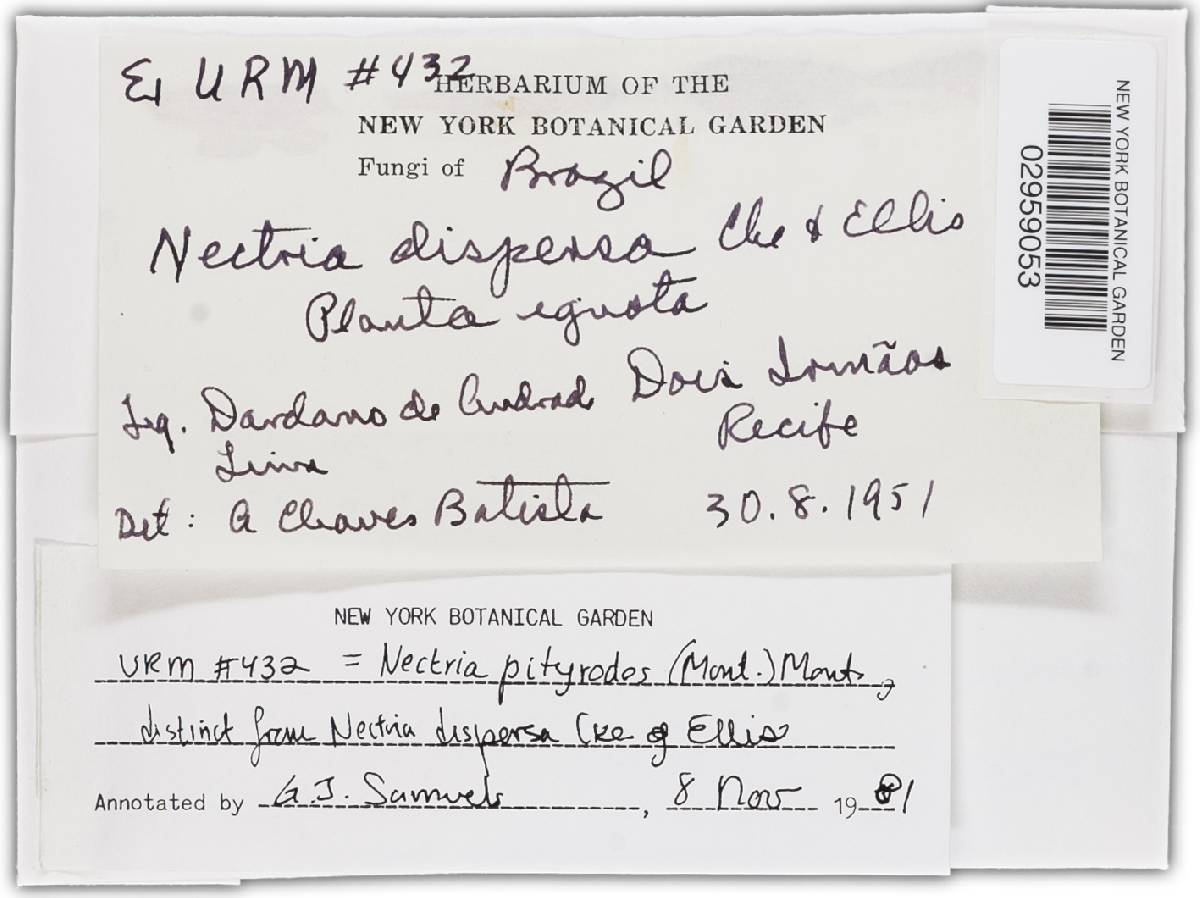 Ex URM #432
HERBARIUM OF THE
NEW YORK BOTANICAL GARDEN
Fungi of Brazil
Nectria dispersa Cke & Ellis
Planta ignota
Leg. Dardano de Andrade Dois Irmãos
Lima Recife
Det : A Chaves Batista 30.8.1951
NEW YORK BOTANICAL GARDEN
02959053
NEW YORK BOTANICAL GARDEN
URM #432 = Nectria pityrodes (Mont.) Mont.,
distinct from Nectria dispersa Cke & Ellis
Annotated by G.J. Samuels, 8 Nov 1981